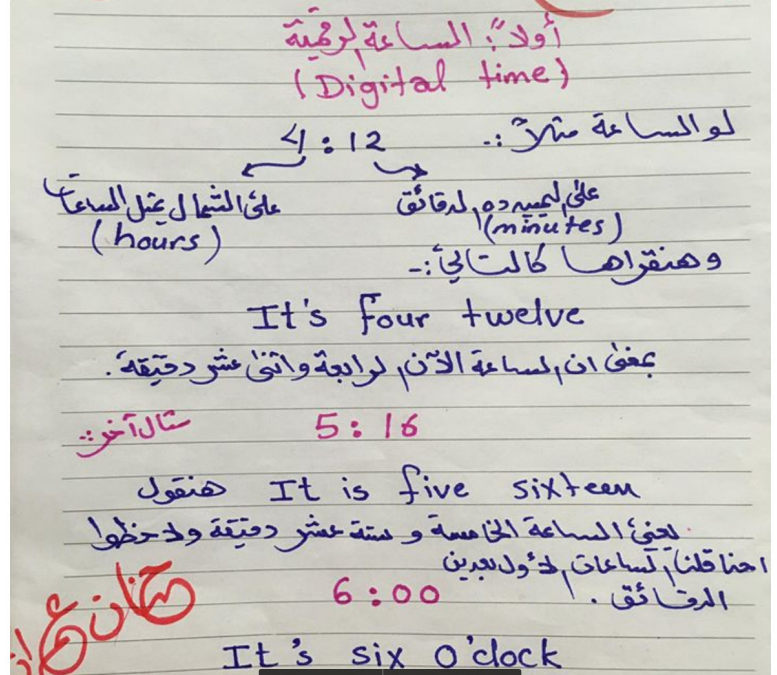 أولاً: الساعة الرقمية
(Digital time)
لو الساعة مثلاً :-
4:12
على اليمين ده الدقائق
(minutes)
على الشمال يمثل الساعات
(hours)
وهنقراها كالتالي :-
It's four twelve
بمعنى ان الساعة الآن الرابعة واثنى عشر دقيقة.
مثال آخر :-
5:16
هنقول It is five sixteen
يعني الساعة الخامسة وستة عشر دقيقة ولاحظوا
احنا قلنا الساعات الأول بعدين
الدقائق.
6:00
It's six o'clock